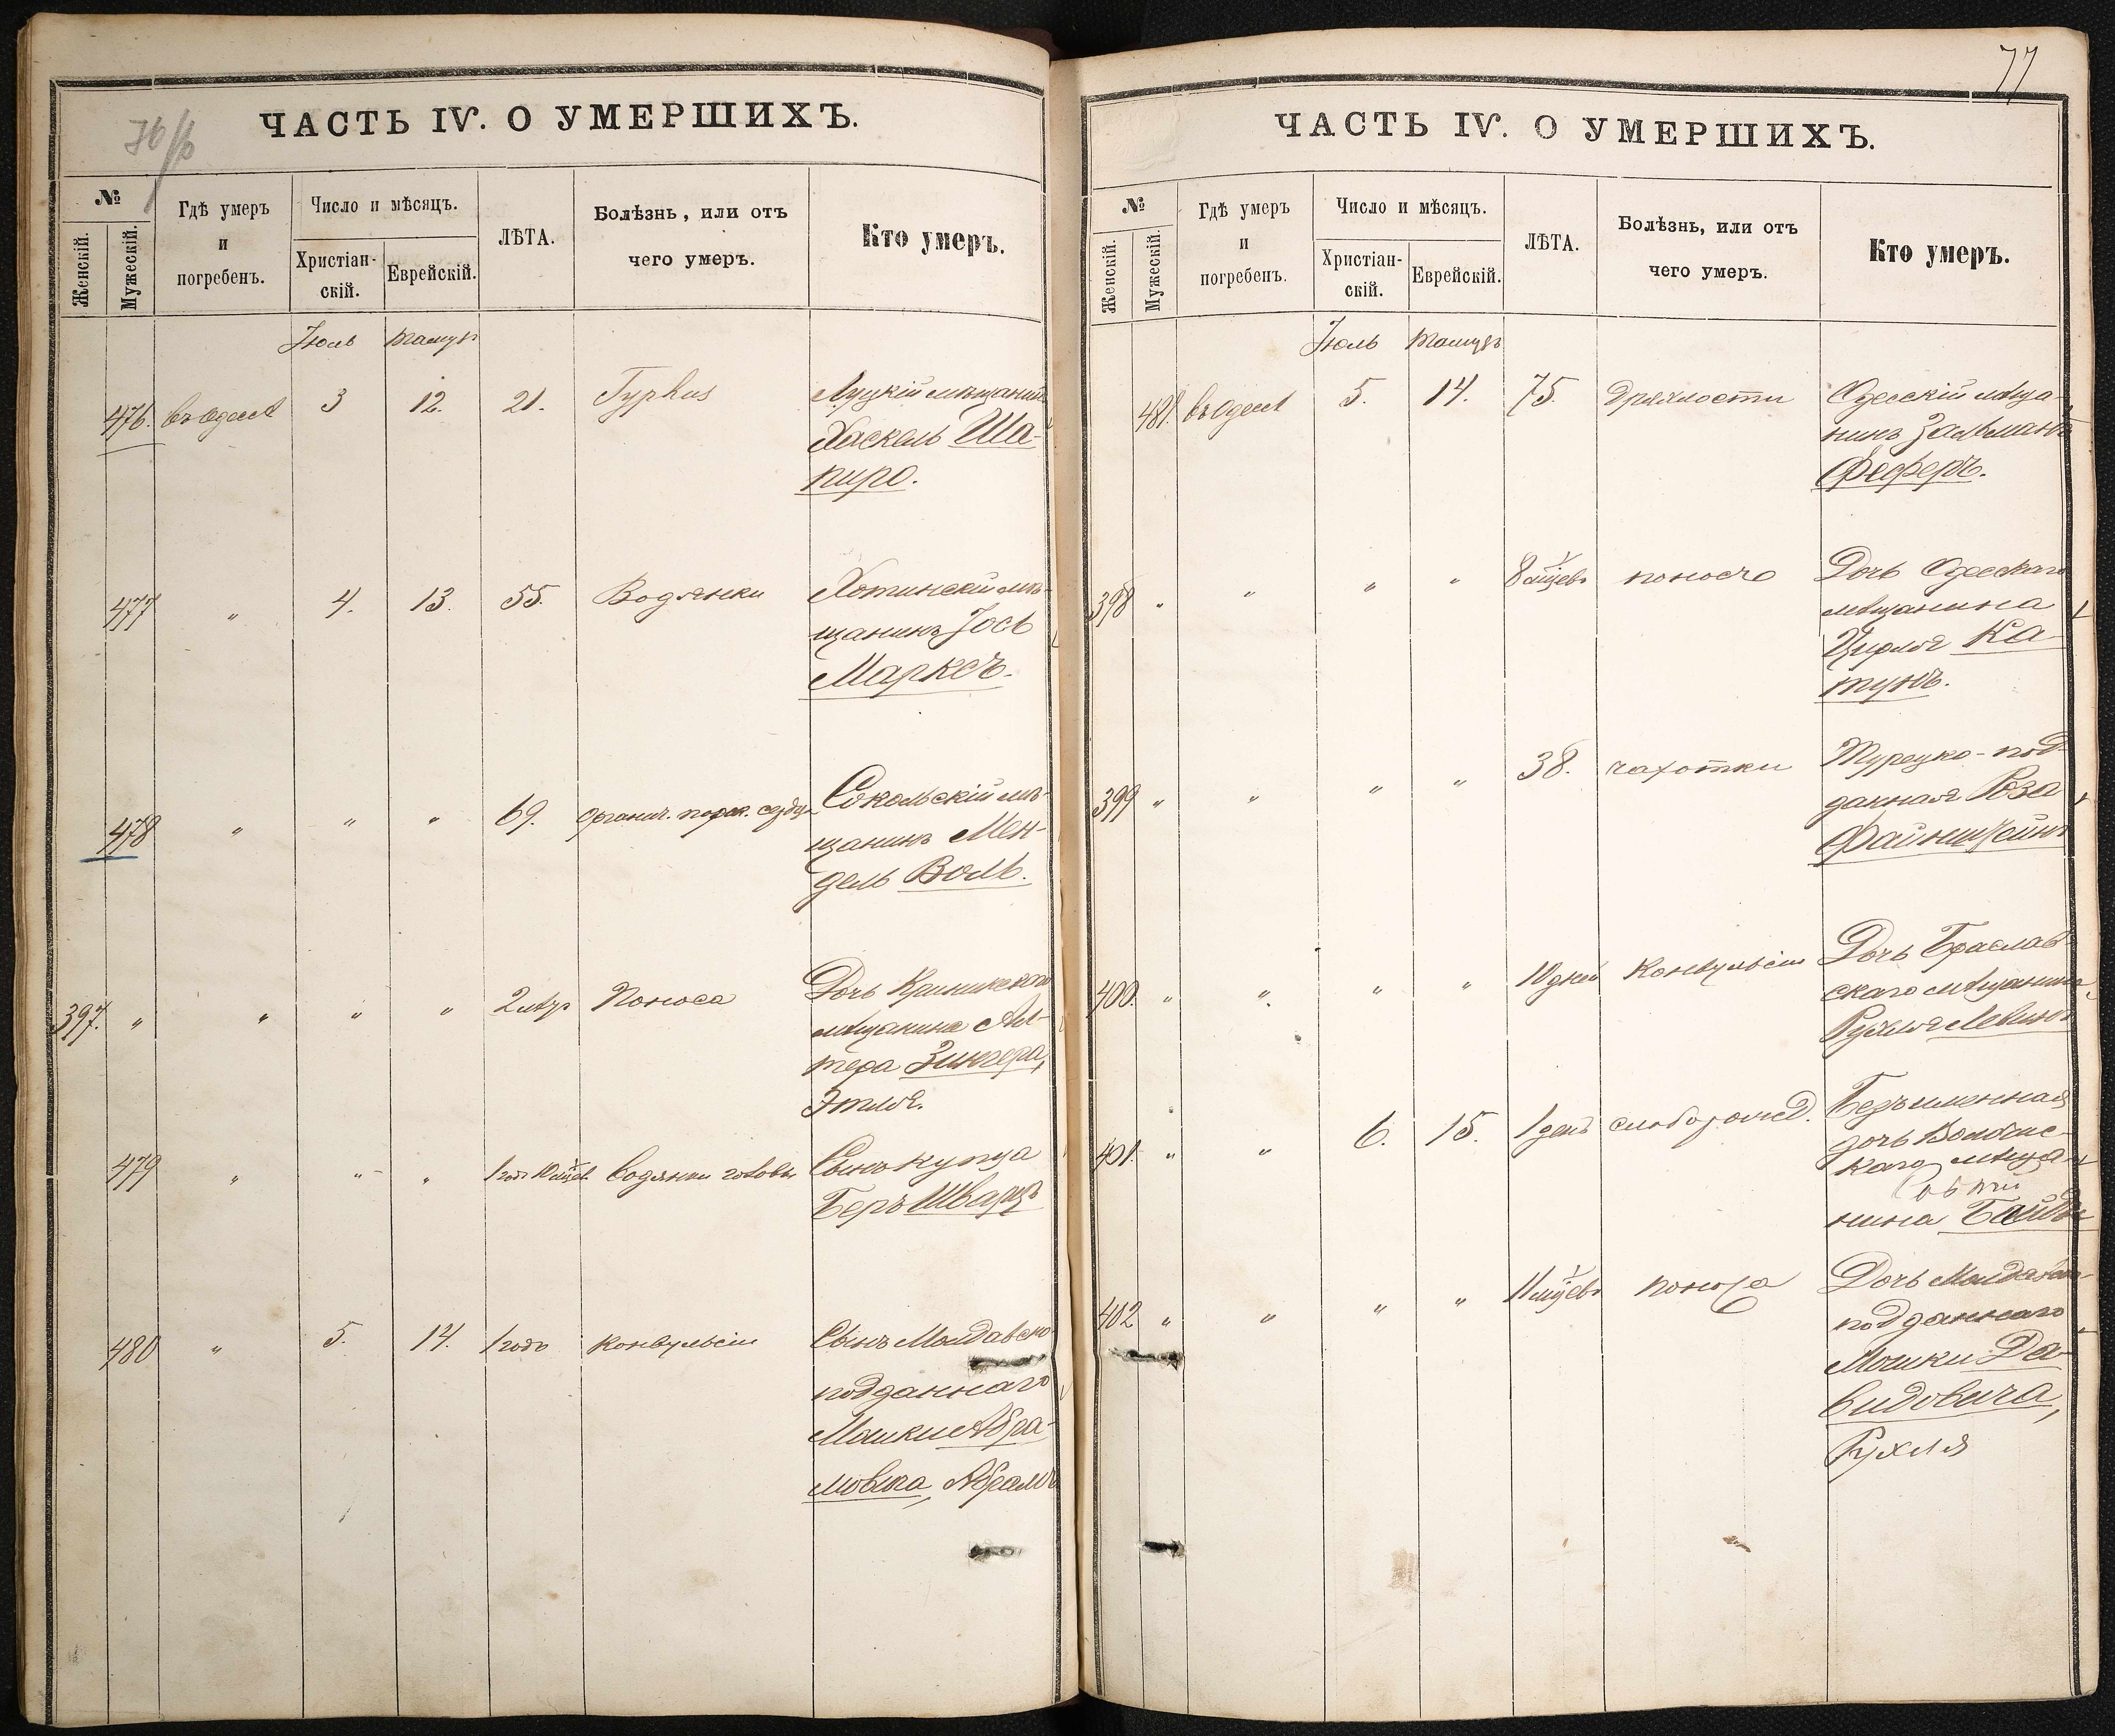 ЧАСТЬ IV. О УМЕРШИХЪ.
№
Женскій.
Мужескій.
Гдѣ умеръ
и
погребенъ.
Число и мѣсяцъ.
Христіан-
скій.
Еврейскій.
ЛѢТА.
Болѣзнь, или отъ
чего умеръ.
Кто умеръ.
Іюль Тамузъ
476. въ Одессѣ 3 12. 21. Typhus Луцкій мѣщанинъ
Хаскель Ша-
пиро.
477 " 4. 13. 55. Водянки Хотинскій мѣ-
щанинъ Іось
Марксъ.
478 " " " 69. Органич. порок. сердца Сокольскій мѣ-
щанинъ Мен-
дель Воль.
397. " " " " 2 мѣс Поноса Дочь
мѣщанина Ал-
тера Зингера,
Этля.
479 " " " 1 годъ 10 мѣсяцев. Водянки головы Сынъ купца
Беръ Шварцъ
480 " 5. 14. 1 годъ конвульсіи Сынъ Молдавско-
подданнаго
Мошки Абра-
мовича, Абрамъ
77
ЧАСТЬ IV. О УМЕРШИХЪ.
№
Женскій.
Мужескій.
Гдѣ умеръ
и
погребенъ.
Число и мѣсяцъ.
Христіан-
скій.
Еврейскій.
ЛѢТА.
Болѣзнь, или отъ
чего умеръ.
Кто умеръ.
Іюль Тамузъ
481. въ Одессѣ 5. 14. 75. Дряхлости Одесскій мѣща-
нинъ Зальманъ
Феферъ.
398 " " " " 8 мѣсяцевъ поноса Дочь Одесскаго
мѣщанина
Цирля Ка-
тунъ.
399 " " " " 38. чахотки Турецко-под-
данная Роза
Файнштейнъ
400. " " " " 10 дней Конвульсіи Дочь Браслав-
скаго мѣщанина
Рухля Левинъ
401. " " 6. 15. 1 день слаборожд. Безъименная
дочь
каго мѣща-
нина
402 " " " " 11 мѣсяцевъ поноса Дочь Молдавско-
подданнаго
Мошки Да-
видовича,
Рухля